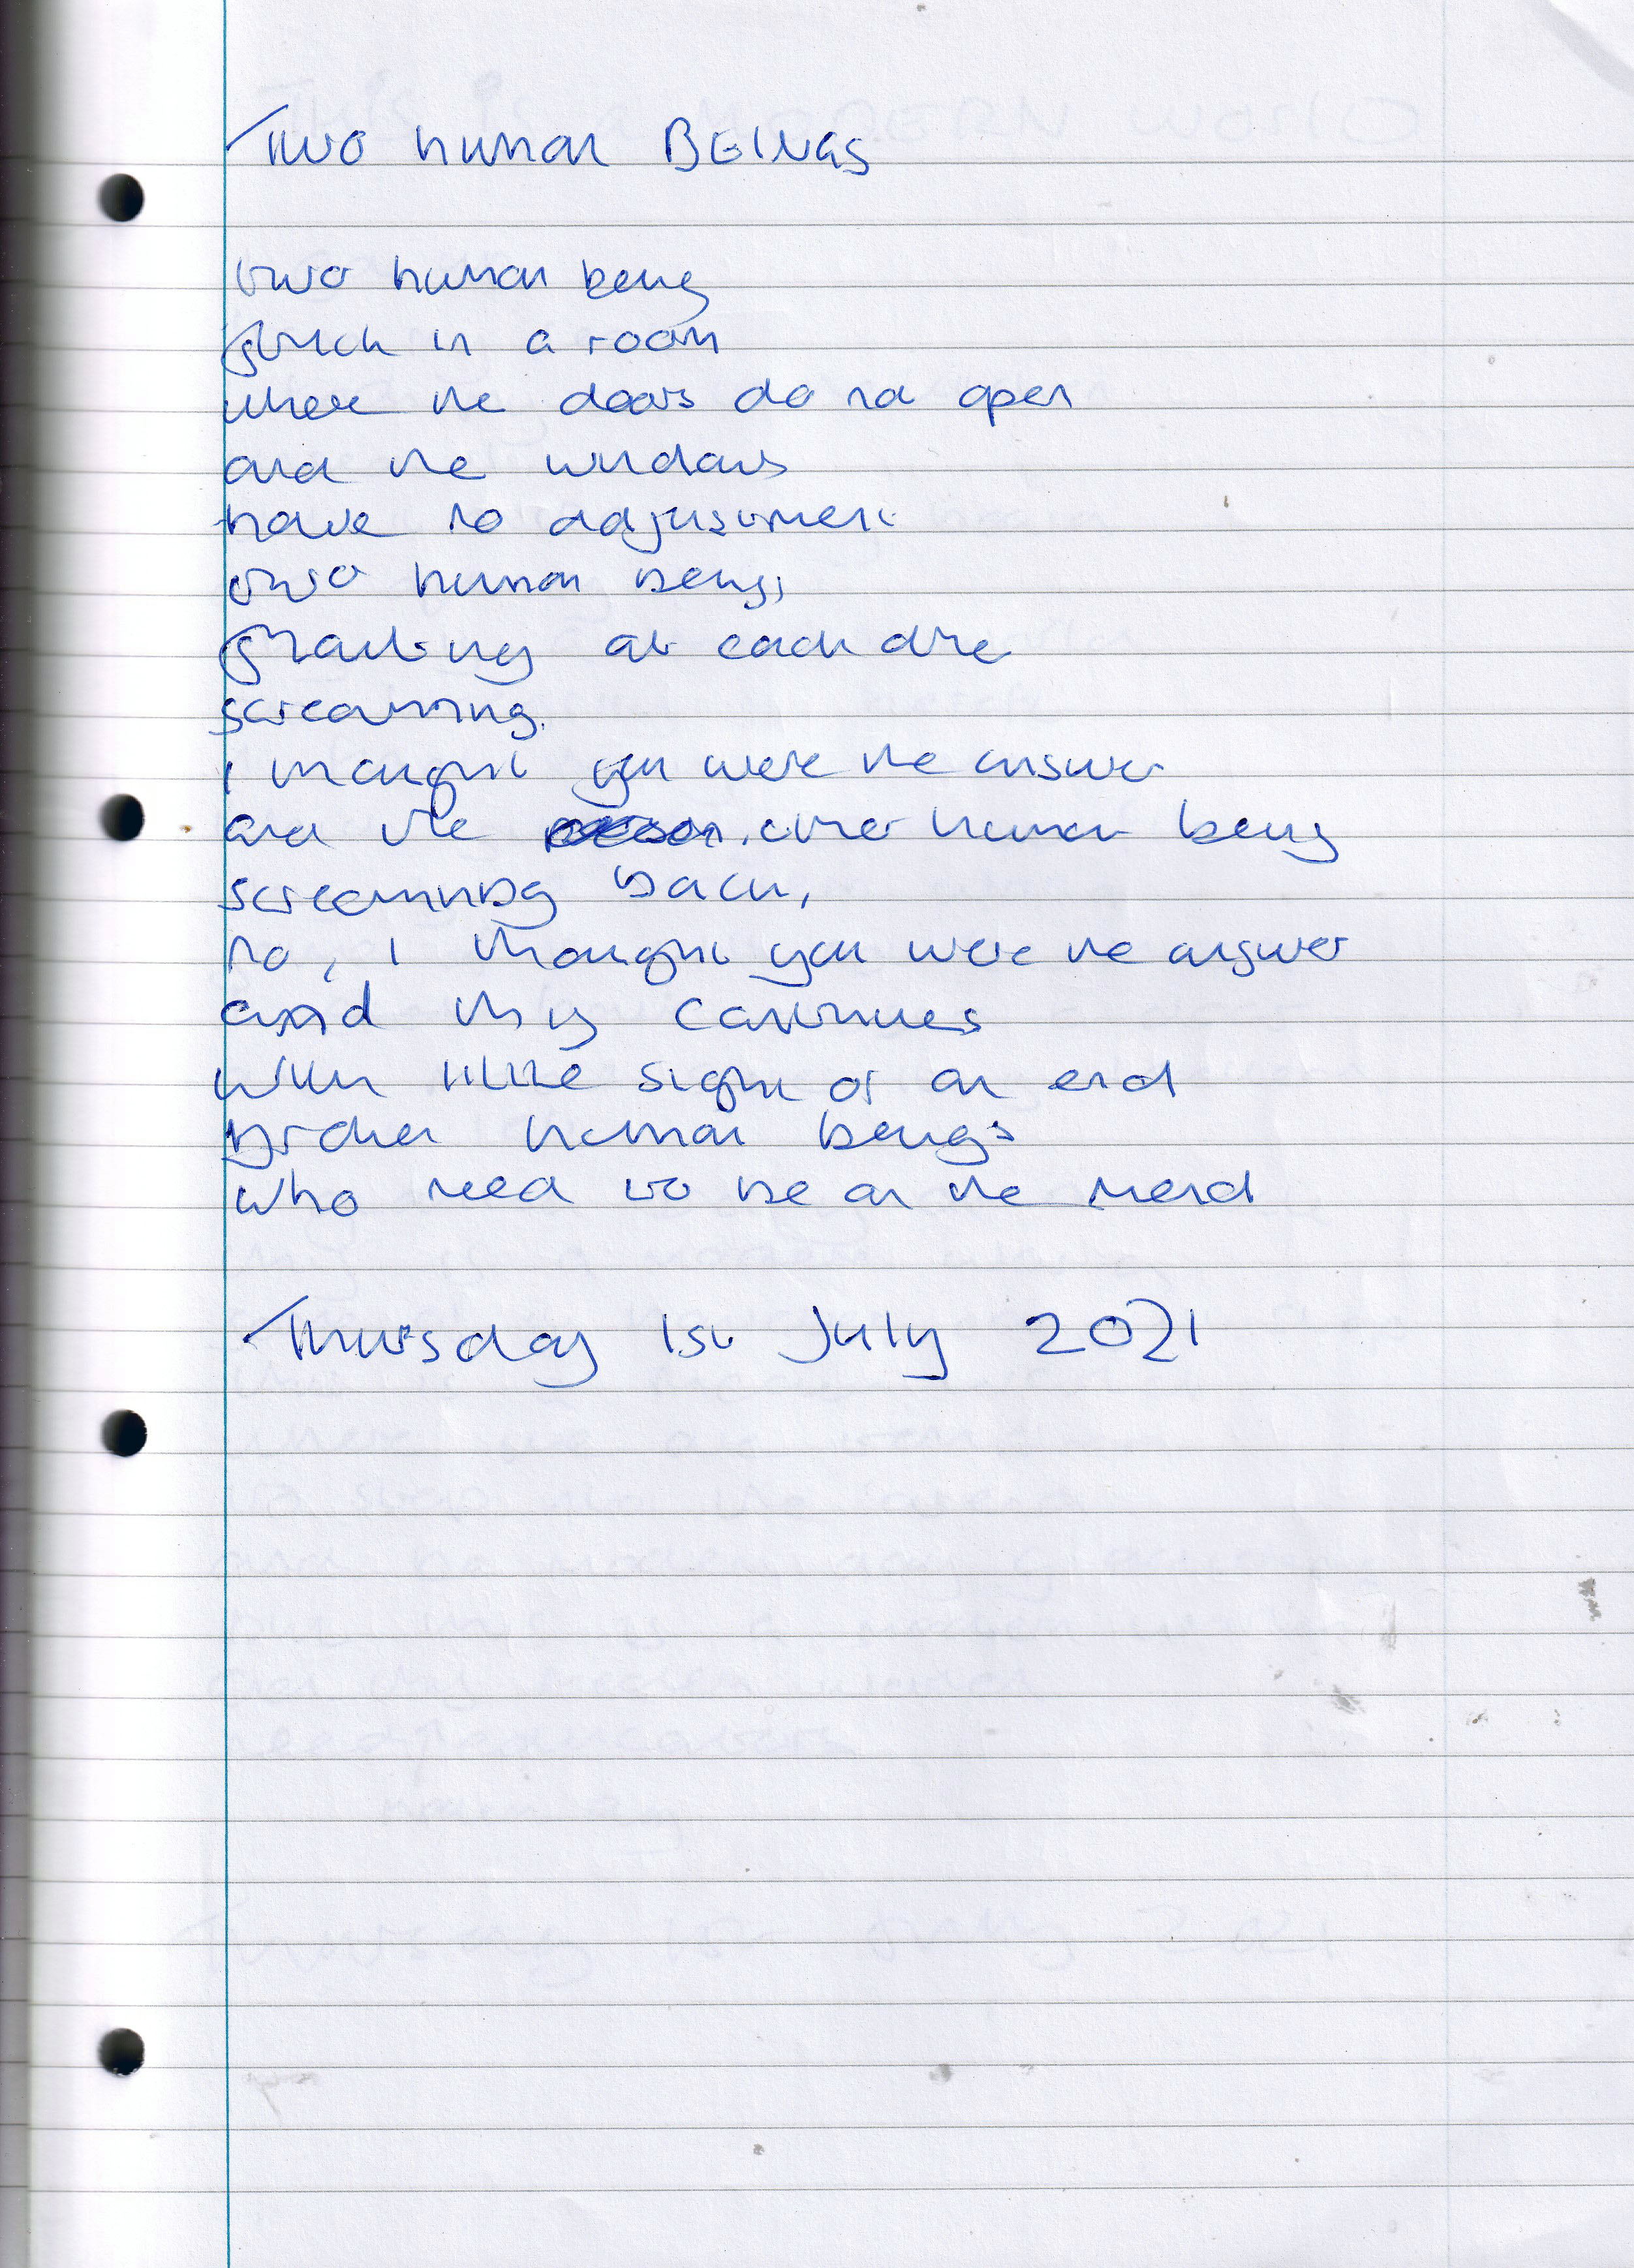 Two human BEINGS
two human beings
stuck in a room
where the doors do not open
and the windows
have no adjustment
two human beings
shouting at each other
screaming.
I thought you were the answer
and the other human being
screaming back,
no, I thought you were the answer
and this continues
with little sight of an end
broken human beings
who need to be on the mend
Thursday 1st July 2021